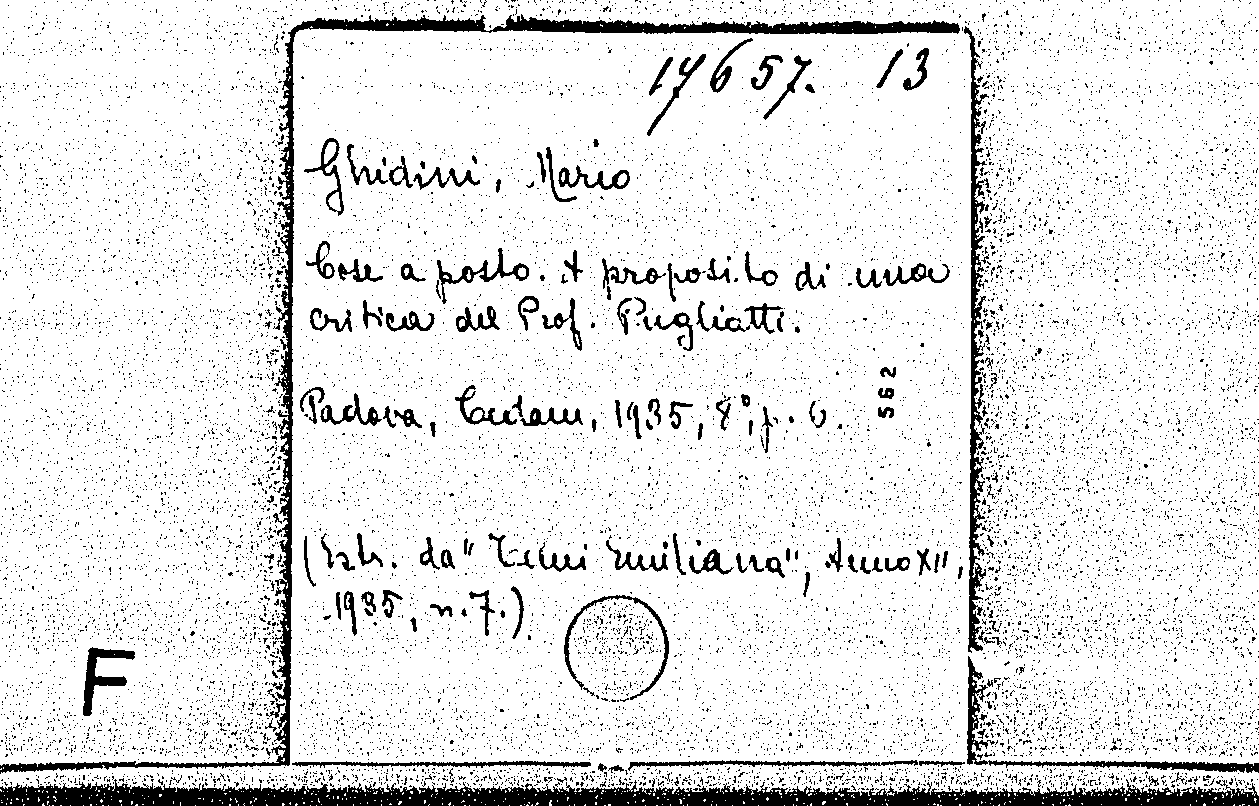 17657. 13
Ghidini, Mario
Cose a posto. A proposito di una
critica del Prof. Pugliatti.
562
Padova, Cedam, 1935, 8°, p. 6.
(Estr. da "Temi Emiliana", Anno XII,
1935, n.7.)
F